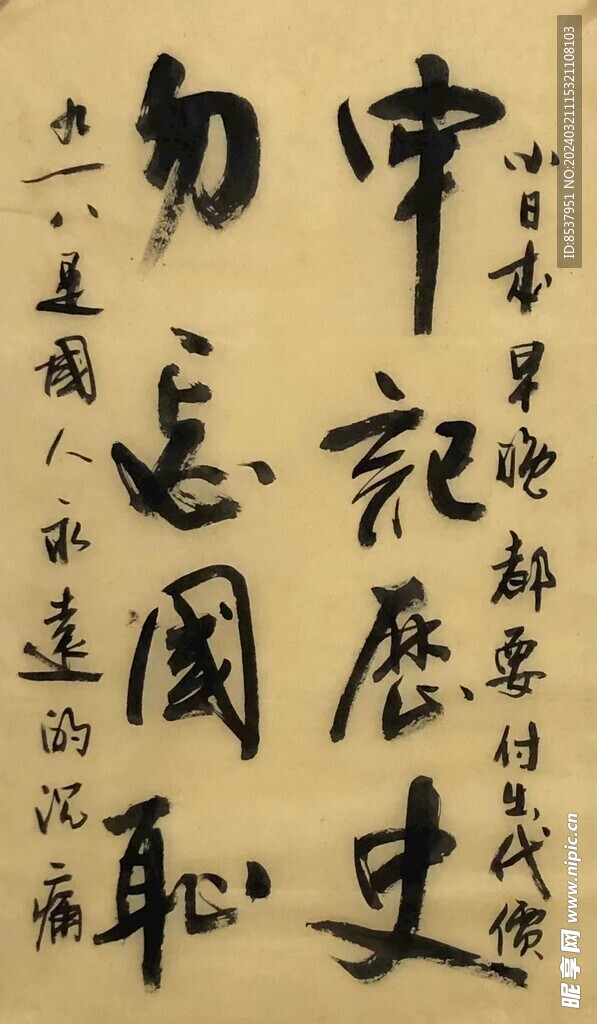 小日本早晚都要付出代價
牢記歷史
勿忘國恥
九一八是國人永遠的沉痛
ID:8537951 NO:20240321115321108103
昵享网 www.nipic.cn